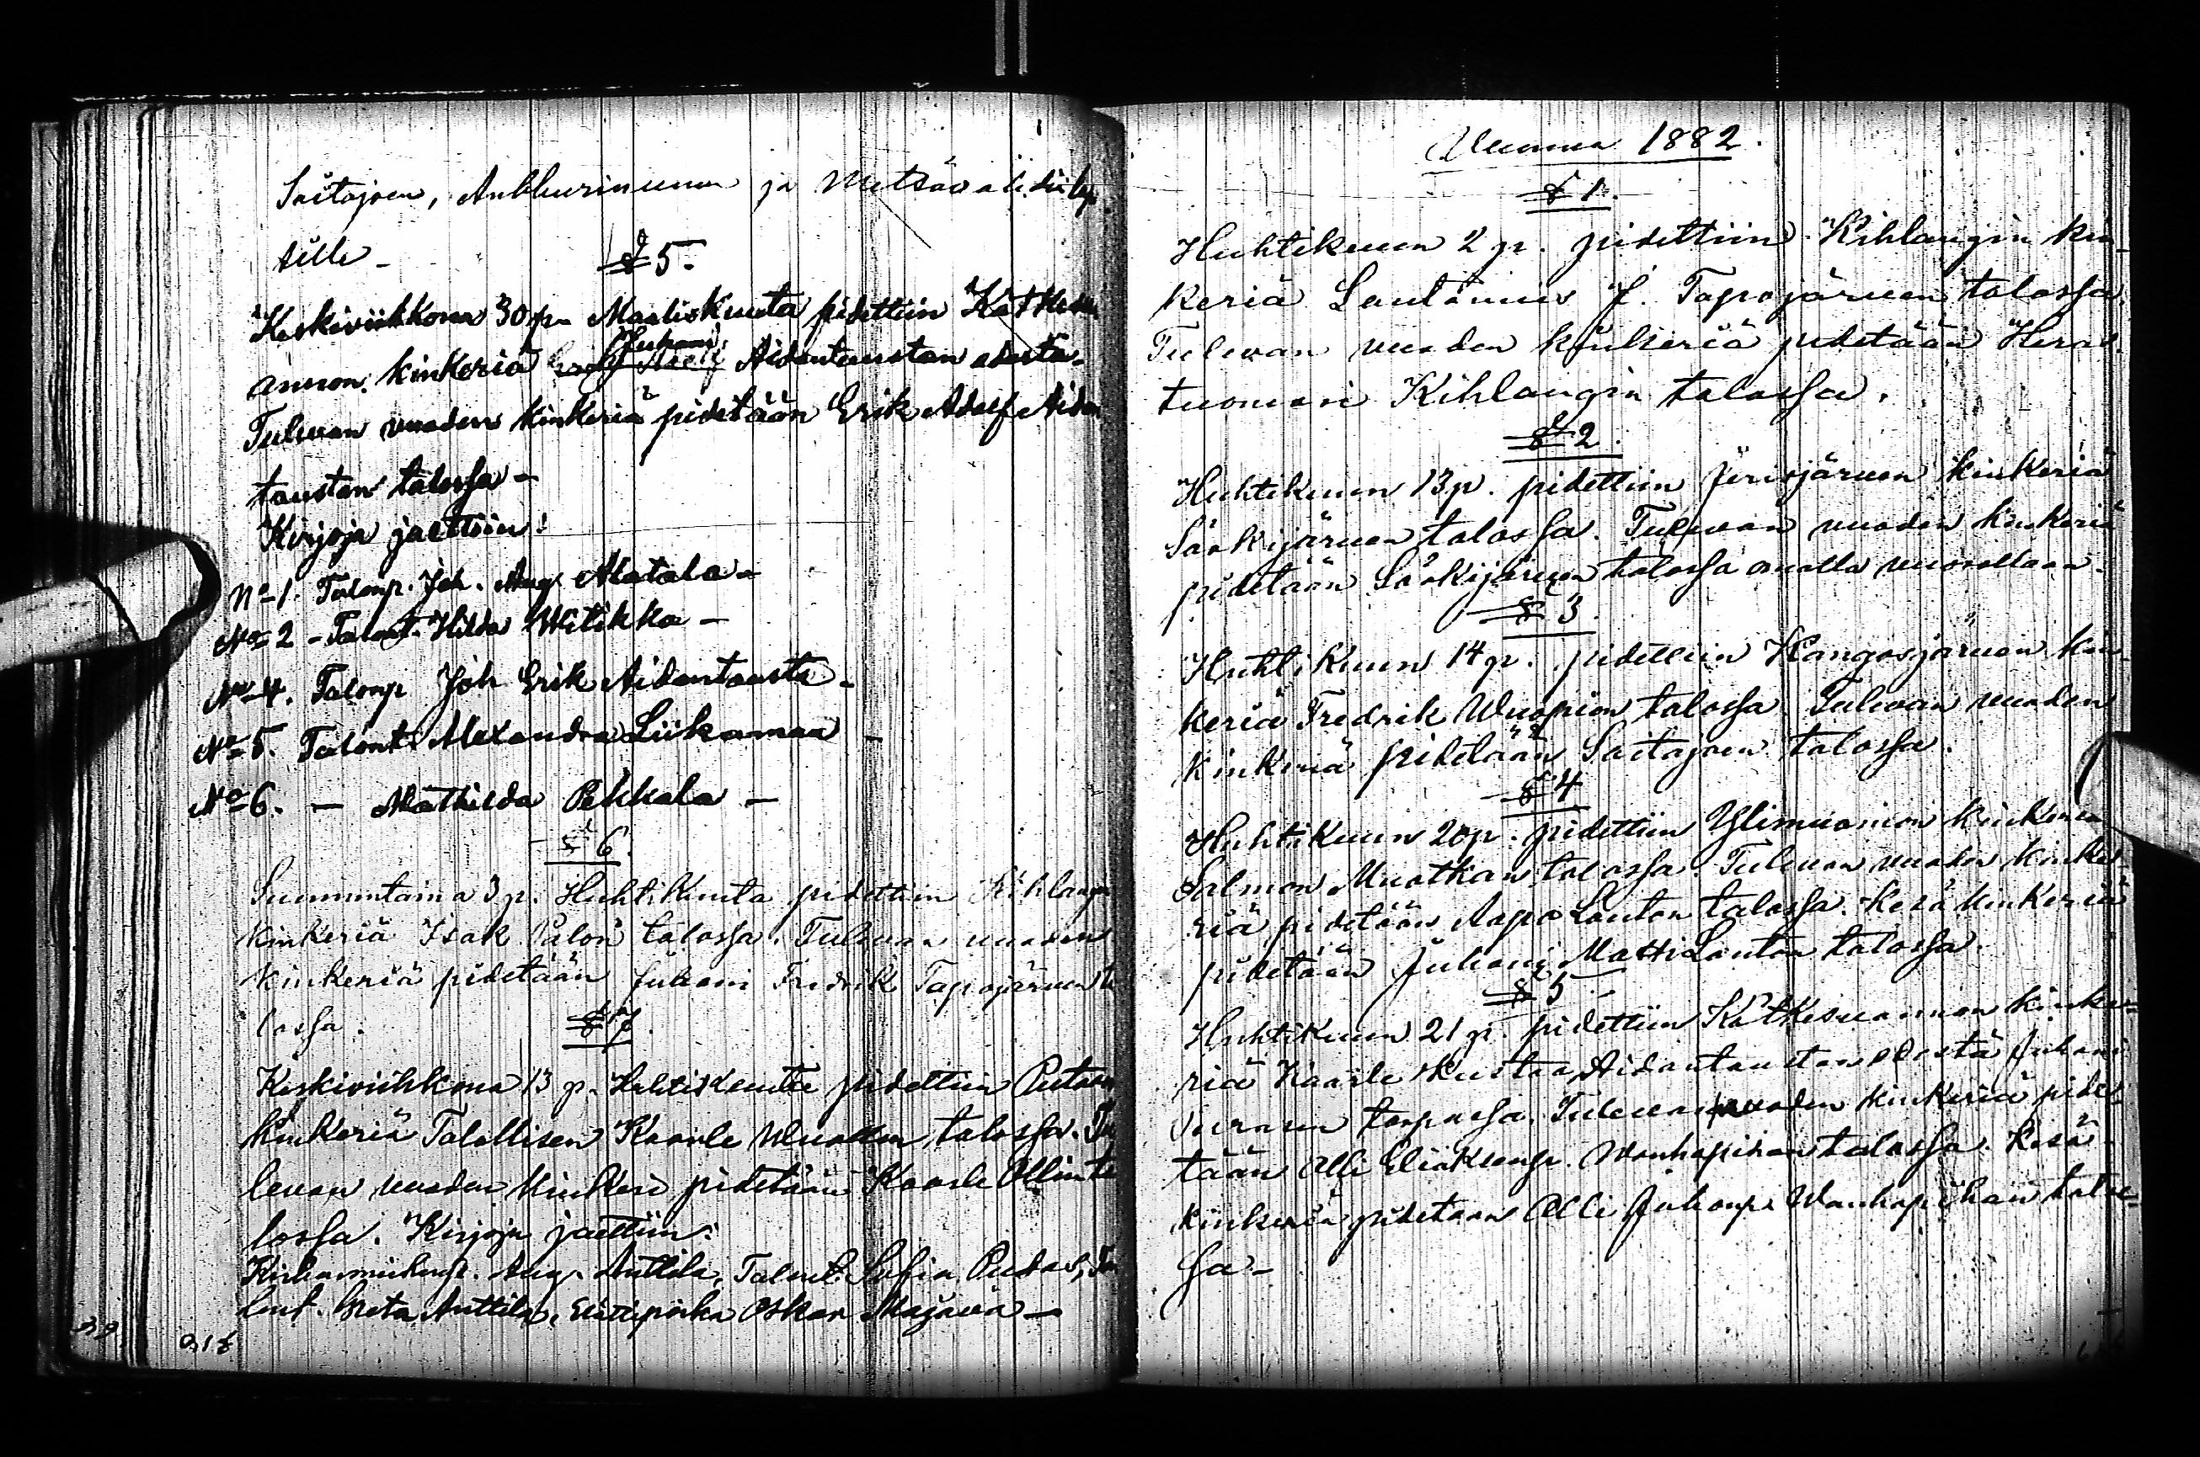 Saitajoen, ja
tille -
§ 5.
Keskiviikkona 30 p. Maaliskuuta pidettiin Kätkesu
annon kinkeriä Juhani Aidantaustan edestä.
Tulevan vuoden kinkeriä pidetään Erik Adolf Aidan
taustan talossa -
Kirjoja jaettiin:
No 1. Talonp. Joh. Aug. Alatalo -
No 2 - Talont. Hilda Witikka -
No 4. Talonp Joh Erik Aidantausta -
No 5. Talont. Alexandra Liikamaa -
No 6. - Mathilda Pekkala -
§ 6.
Sunnuntaina 3 p. Huhtikuuta pidettiin Kihlangin
kinkeriä Isak Palon talossa. Tulevan vuoden
kinkeriä pidetään Juhani Fredrik Tapojärven ta
lossa.
§ 7.
Keskiviikkona 13 p. Huhtikuuta pidettiin
kinkeriä Talollisen Kaarle talossa. Tu
levan vuoden kinkeri pidetään Kaarle Ollin ta
lossa. Kirjoja jaettiin:
Aug. Anttila, Talont. Sofia Pudas, Ta
lont. Greta Anttila, Oskar Majava -
Vuonna 1882.
§ 1.
Huhtikuun 2 p. pidettiin Kihlangin kin-
keriä Lautamies J. Tapojärven talossa.
Tulevan vuoden kinkeriä pidetään Heras-
tuomari Kihlangin talossa.
§ 2.
Huhtikuun 13 p. pidettiin Jerisjärven kinkeriä
Särkijärven talossa. Tulevan vuoden kinkeriä
pidetään Särkijärven talossa vuorollaan.
§ 3.
Huhtikuun 14 p. pidettiin Kangosjärven kin-
keriä Fredrik Wuopion talossa. Tulevan vuoden
kinkeriä pidetään Saitajoen talossa.
§ 4
Huhtikuun 20 p. pidettiin Ylimuonion kinkeriä
Salmon Muotkan talossa. Tulevan vuoden kinke
riä pidetään Aapo Lauton talossa. Kesä kinkeriä
pidetään Juhani Matti Lauton talossa.
§ 5
Huhtikuun 21 p. pidettiin Kätkesuannon kinke-
riä Kaarle Kustaa Aidantaustan edestä Juhani
torpassa. Tulevan vuoden kinkeriä pide-
tään Olli Eliaksenp. Wanhapihan talossa. Kesä-
kinkeriä pidetään Olli Juhonp. Wanhapihan talos-
sa -